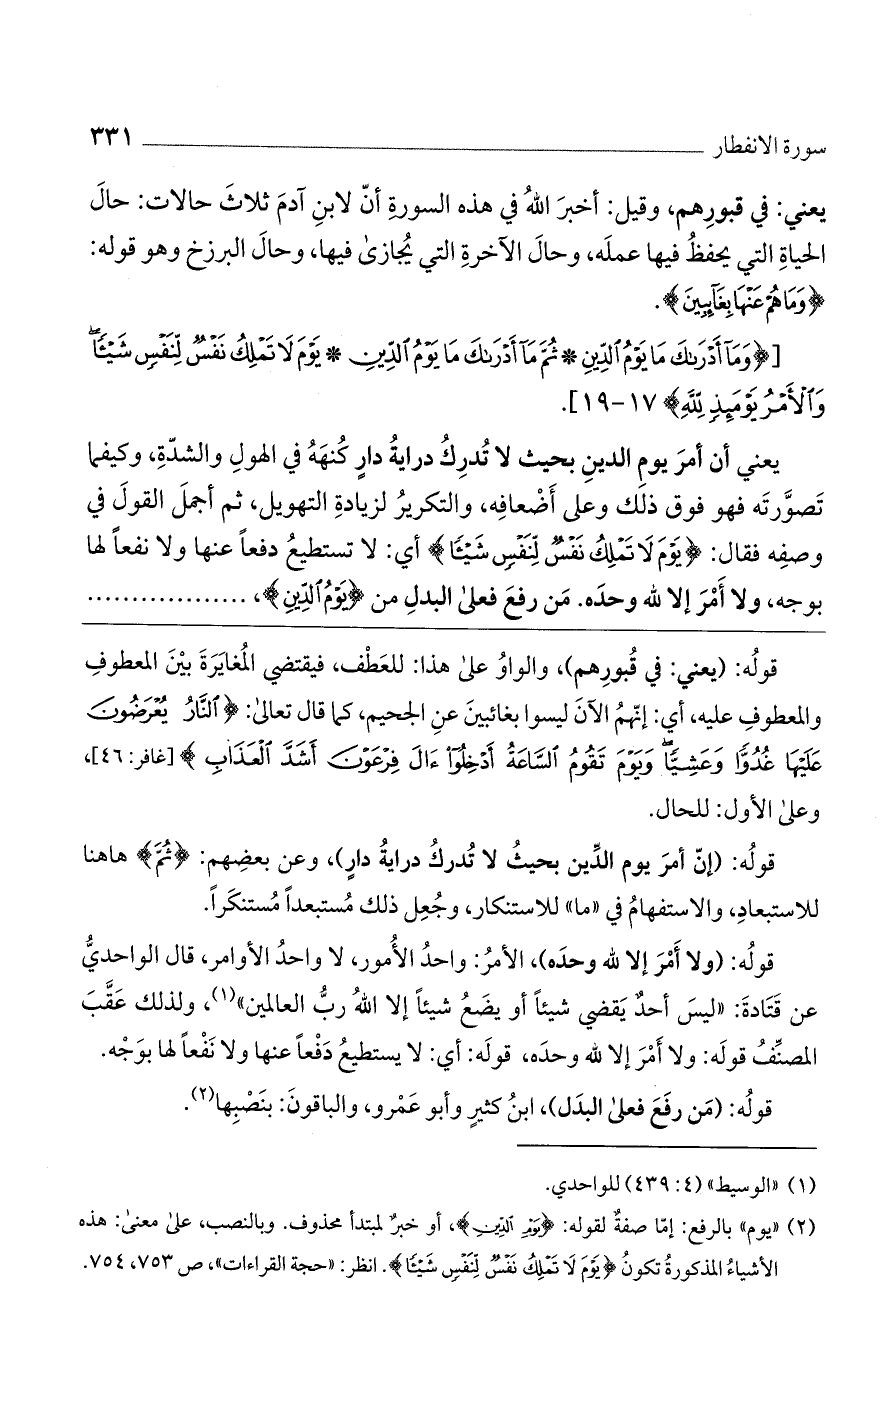 سورة الانفطار ٣٣١
يعني: في قبورِهم، وقيل: أخبرَ اللهُ في هذه السورةِ أنّ لابنِ آدمَ ثلاثَ حالات: حالَ
الحياةِ التي يحفظُ فيها عملَه، وحالَ الآخرةِ التي يُجازىٰ فيها، وحالَ البرزخ وهو قوله:
﴿وَمَا هُمْ عَنْهَا بِغَآئِبِينَ﴾.
[﴿وَمَآ أَدْرَىٰكَ مَا يَوْمُ ٱلدِّينِ * ثُمَّ مَآ أَدْرَىٰكَ مَا يَوْمُ ٱلدِّينِ * يَوْمَ لَا تَمْلِكُ نَفْسٌ لِّنَفْسٍ شَيْـًٔا ۖ
وَٱلْأَمْرُ يَوْمَئِذٍ لِّلَّهِ﴾ ١٧-١٩].
يعني أن أمرَ يومِ الدينِ بحيث لا تُدرِكُ درايةُ دارٍ كُنهَهُ في الهولِ والشدّةِ، وكيفما
تَصوَّرتَه فهو فوق ذلك وعلى أَضْعافِه، والتكريرُ لزيادةِ التهويل، ثم أجملَ القولَ في
وصفِه فقال: ﴿يَوْمَ لَا تَمْلِكُ نَفْسٌ لِّنَفْسٍ شَيْـًٔا﴾ أي: لا تستطيعُ دفعاً عنها ولا نفعاً لها
بوجه، ولا أَمْرَ إلا لله وحدَه. مَن رفعَ فعلىٰ البدلِ من ﴿يَوْمُ ٱلدِّينِ﴾، ..................
قولُه: (يعني: في قُبورِهم)، والواوُ علىٰ هذا: للعَطْف، فيقتضي المُغايَرَةَ بيْنَ المعطوفِ
والمعطوفِ عليه، أي: إنّهمُ الآنَ ليسوا بغائبينَ عنِ الجحيم، كما قال تعالىٰ: ﴿ٱلنَّارُ يُعْرَضُونَ
عَلَيْهَا غُدُوًّا وَعَشِيًّا ۖ وَيَوْمَ تَقُومُ ٱلسَّاعَةُ أَدْخِلُوٓا۟ ءَالَ فِرْعَوْنَ أَشَدَّ ٱلْعَذَابِ﴾ [غافر: ٤٦]،
وعلىٰ الأول: للحال.
قولُه: (إنّ أمرَ يومِ الدِّين بحيثُ لا تُدركُ درايةُ دارٍ)، وعن بعضِهم: ﴿ثُمَّ﴾ هاهنا
للاستبعادِ، والاستفهامُ في «ما» للاستنكار، وجُعِل ذلك مُستبعداً مُستنكَراً.
قولُه: (ولا أَمْرَ إلا لله وحدَه)، الأمرُ: واحدُ الأُمور، لا واحدُ الأوامر، قال الواحديُّ
عن قَتَادةَ: «ليسَ أحدٌ يَقضي شيئاً أو يصنَعُ شيئاً إلا اللهُ ربُّ العالمين»(١)، ولذلك عَقَّبَ
المصنِّفُ قولَه: ولا أَمْرَ إلا لله وحدَه، قولَه: أي: لا يستطيعُ دَفْعاً عنها ولا نَفْعاً لها بوَجْه.
قولُه: (مَن رفَعَ فعلىٰ البدَل)، ابنُ كثيرٍ وأبو عَمْرو، والباقونَ: بنَصْبِها(٢).
(١) «الوسيط» (٤: ٤٣٩) للواحدي.
(٢) «يوم» بالرفع: إمّا صفةٌ لقوله: ﴿يَوْمُ ٱلدِّينِ﴾، أو خبرٌ لمبتدأ محذوف. وبالنصب، علىٰ معنىٰ: هذه
الأشياءُ المذكورةُ تكونُ ﴿يَوْمَ لَا تَمْلِكُ نَفْسٌ لِّنَفْسٍ شَيْـًٔا﴾. انظر: «حجة القراءات»، ص ٧٥٣، ٧٥٤.